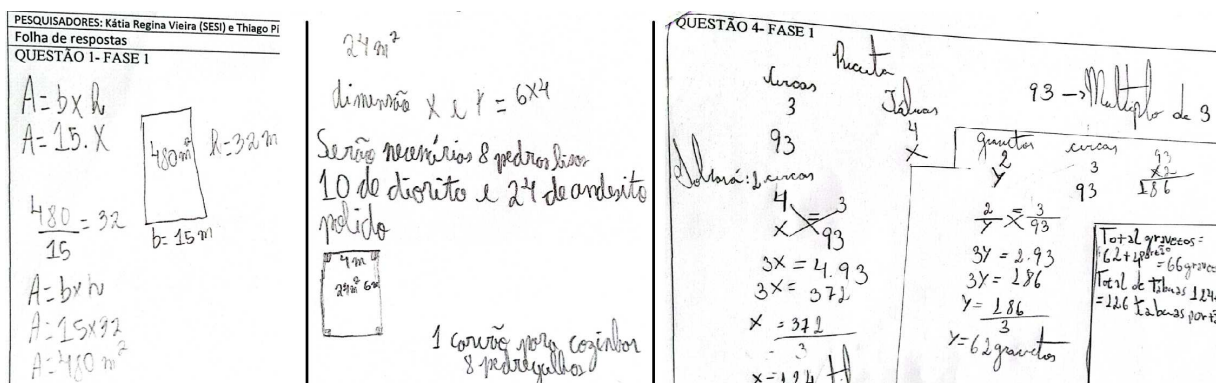 PESQUISADORES: Kátia Regina Vieira (SESI) e Thiago Pi
Folha de respostas
QUESTÃO 1- FASE 1
A=bxh
A=15.X
480m²
h=32m
b=15m
480/15 = 32
A=bxh
A=15x32
A=480 m²
24 m²
dimensão X e Y = 6x4
Serão necessárias 8 pedras lisas
10 de diorito e 24 de andesito
polido
4m
24m² 6m
1 carvão para cozinhar
8 pedregulhos
QUESTÃO 4- FASE 1
Receita
cercas
3
93
Tábuas
4
X
93 → Multiplo de 3
4 = 3
X 93
3X = 4.93
3X = 372
X = 372
3
X = 124
gravetos
2
Y
cercas
3
93
93
x2
186
2/Y = 3/93
3Y = 2.93
3Y = 186
Y = 186
3
Y=62gravetos
Total gravetos=
62+4
=66grave
Total de Tábuas 124
=126 Tabuas